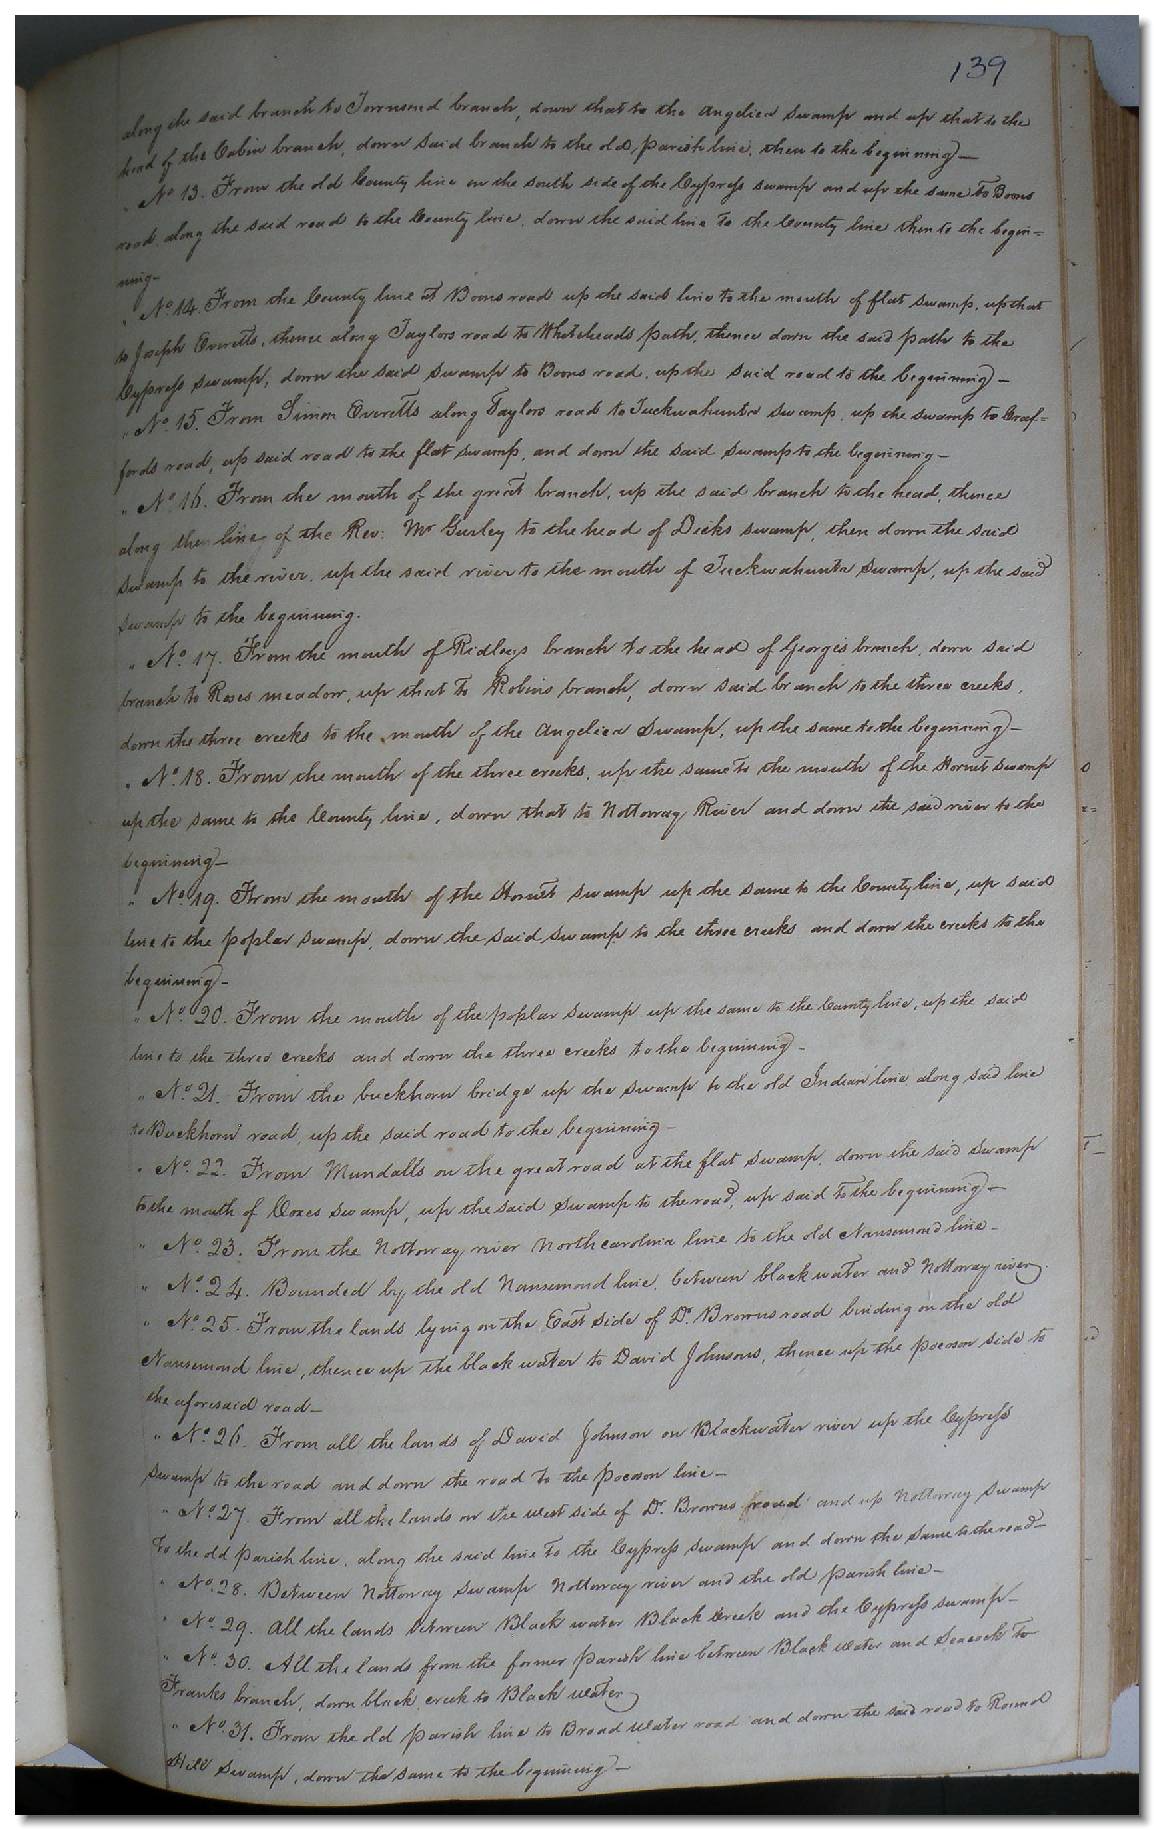 139
along the said branch to Townsend branch, down that to the angelica swamp and up that to the
head of the Cabin branch, down said branch to the old parish line, then to the beginning—
" No 13. From the old County line on the south side of the Cypress swamp and up the same to Boons
road, along the said road to the County line, down the said line to the County line then to the begin=
ning—
" No 14. From the County line at Boons road up the said line to the mouth of flat swamp, up that
to Joseph Everetts, thence along Taylors road to Whiteheads path, thence down the said path to the
Cypress swamp, down the said swamp to Boons road, up the said road to the beginning—
" No. 15. From Simon Everetts along Taylors road to Tuckwahunta swamp, up the swamp to Craf=
fords road, up said road to the flat swamp, and down the said swamp to the beginning—
" No 16. From the mouth of the great branch, up the said branch to the head, thence
along the line of the Rev: Mr Gurley to the head of Dicks swamp, then down the said
swamp to the river, up the said river to the mouth of Tuckwahunta swamp, up the said
swamp to the beginning.
" No. 17. From the mouth of Ridleys branch to the head of Georges branch, down said
branch to Roses meadow, up that to Robins branch, down said branch to the three creeks,
down the three creeks to the mouth of the angelica swamp, up the same to the beginning—
" No. 18. From the mouth of the three creeks, up the same to the mouth of the Hornet swamp
up the same to the County line, down that to Nottoway River and down the said river to the
beginning—
" No 19. From the mouth of the Hornet swamp up the same to the County line, up said
line to the poplar swamp, down the said swamp to the three creeks and down the creeks to the
beginning—
" No. 20. From the mouth of the poplar swamp up the same to the County line, up the said
line to the three creeks and down the three creeks to the beginning—
" No. 21. From the buckhorn bridge up the swamp to the old Indian line along said line
to Buckhorn road, up the said road to the beginning—
" No. 22. From Mundalls on the great road at the flat swamp, down the said swamp
to the mouth of Coxes swamp, up the said swamp to the road, up said to the beginning—
" No. 23. From the Nottoway river North carolina line to the old Nansemond line—
" No. 24. Bounded by the old Nansemond line, between black water and Nottoway river.
" No. 25. From the lands lying on the East side of Dr. Browns road binding on the old
Nansemond line, thence up the black water to David Johnsons, thence up the pocoson side to
the aforesaid road—
" No. 26. From all the lands of David Johnson on Blackwater river up the Cypress
swamp to the road and down the road to the pocoson line—
" No. 27. From all the lands on the west side of Dr. Browns road and up Nottoway swamp
to the old parish line, along the said line to the Cypress swamp and down the same to the road—
" No. 28. Between Nottoway swamp Nottoway river and the old parish line—
" No. 29. all the lands between Black water Black Creek and the Cypress swamp—
" No. 30. All the lands from the former parish line between Black water and Seacock to
Franks branch, down black creek to Black water
" No. 31. From the old parish line to Broad water road and down the said road to Round
Hill swamp, down the same to the beginning—